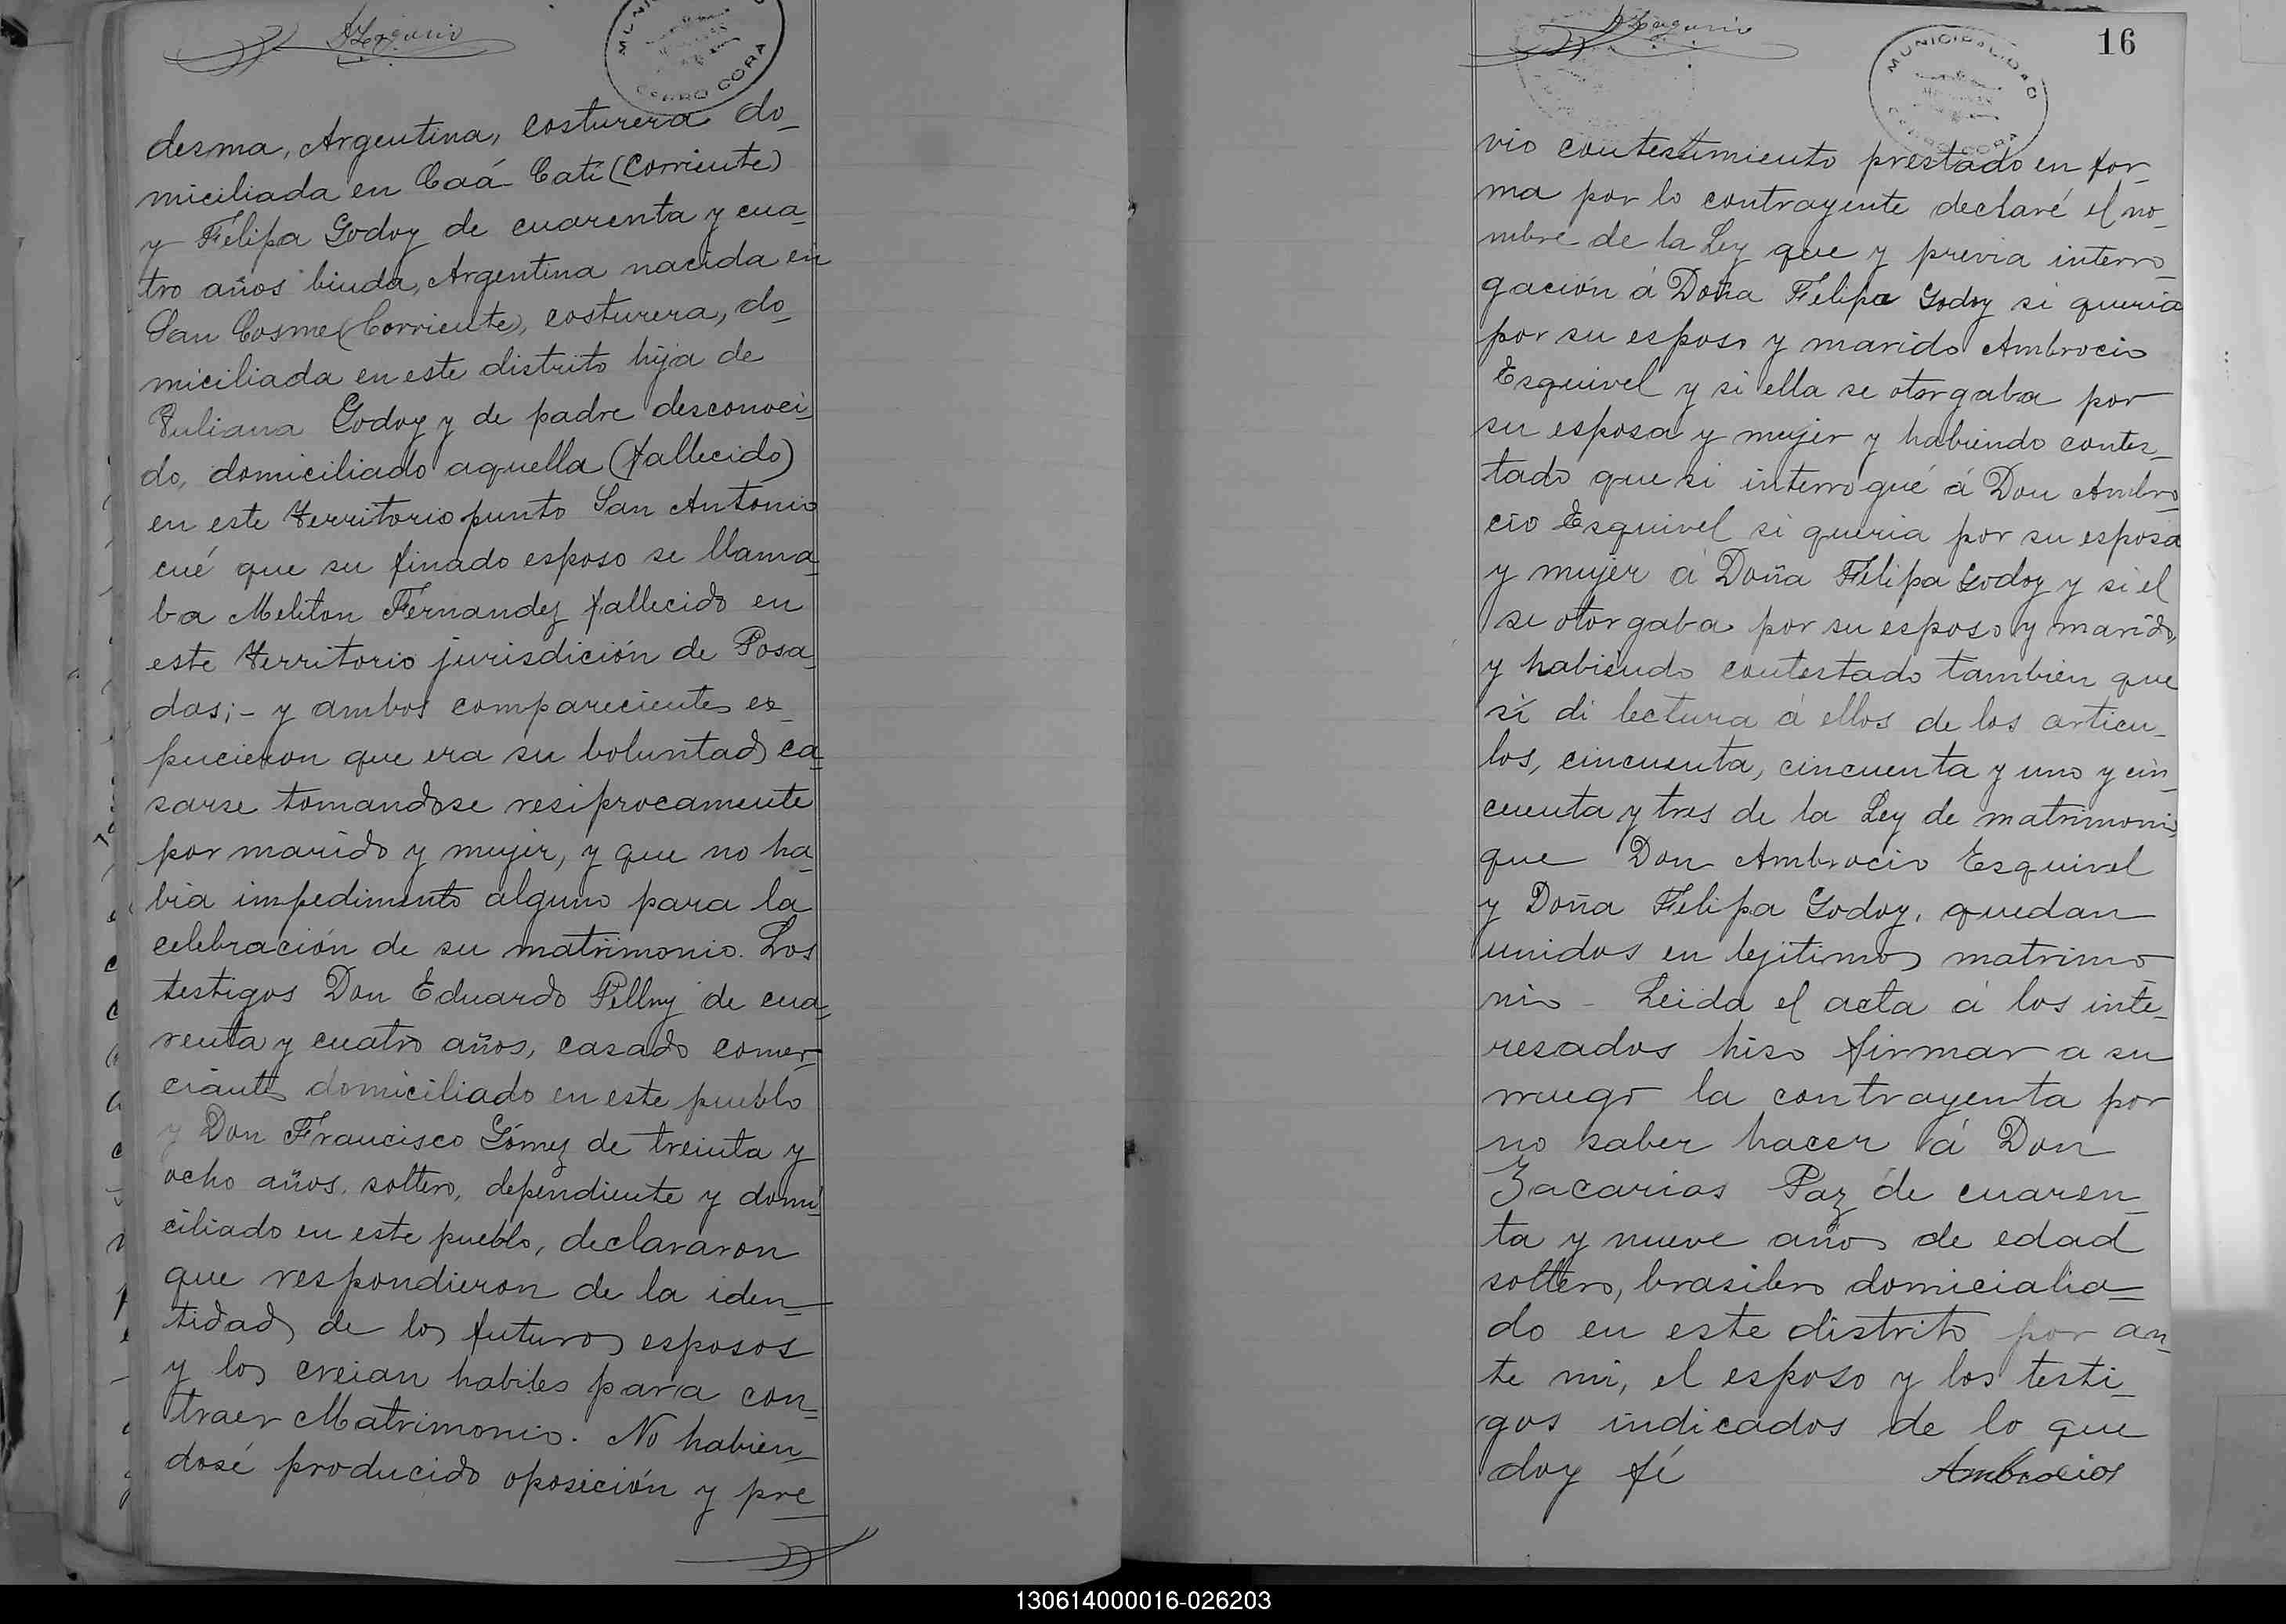 MUNICIPALIDAD
CERRO CORA
desma, Argentina, costurera do_
miciliada en Caá Catí (Corriente)
y Felipa Godoy de cuarenta y cua_
tro años biuda, Argentina nacida en
San Cosme (Corriente), costurera, do_
miciliada en este distrito hija de
Juliana Godoy y de padre desconoci_
do, domiciliado aquella (fallecido)
en este Territorio punto San Antonio
cué que su finado esposo se llama_
ba Meliton Fernandez fallecido en
este Territorio jurisdición de Posa_
das;- y ambos comparecientes ex_
pucieron que era su boluntad ca_
sarse tomandose resiprocamente
por marido y mujer, y que no ha_
bia impedimento alguno para la
celebración de su matrimonio. Los
testigos Don Eduardo de cua_
renta y cuatro años, casado comer_
ciante domiciliado en este pueblo
y Don Francisco Gómez de treinta y
ocho años, soltero, dependiente y domi_
ciliado en este pueblo, declararon
que respondieron de la iden_
tidad de los futuros esposos
y los creian habiles para con_
traer Matrimonio. No habien_
dosé producido oposición y pre_
16
MUNICIPALIDAD
CERRO CORA
vio contestimiento prestado en for_
ma por lo contrayente declaré el no_
mbre de la Ley que y previa interro_
gación á Doña Felipa Godoy si queria
por su esposo y marido Ambrocio
Esquivel y si ella se otorgaba por
su esposa y mujer y habiendo contes_
tado que si interrogué á Don Ambro_
cio Esquivel si queria por su esposa
y mujer á Doña Felipa Godoy y si el
se otorgaba por su esposo y marido,
y habiendo contestado tambien que
sí di lectura á ellos de los articu_
los, cincuenta, cincuenta y uno y cin_
cuenta y tres de la Ley de matrimonio,
que Don Ambrocio Esquivel
y Doña Felipa Godoy, quedan
unidos en lejitimo matrimo_
nio - Leida el acta á los inte_
resados hiso firmar a su
rruego la contrayenta por
no saber hacer á Don
Zacarias Paz de cuaren_
ta y nueve años de edad
soltero, brasilero domicialia_
do en este distrito por an_
te mi, el esposo y los testi_
gos indicados de lo que
doy fé Ambrocios
130614000016-026203